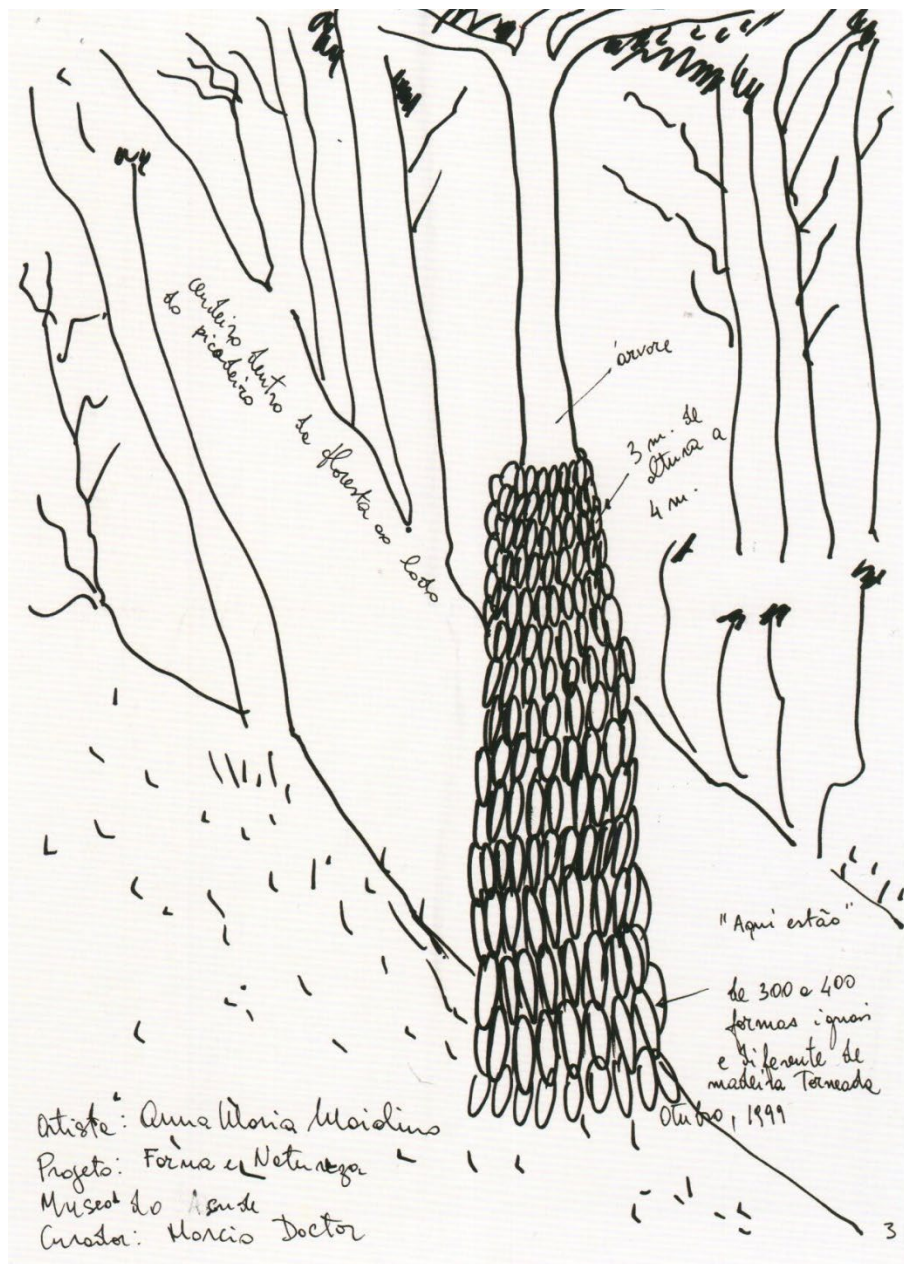 canteiro dentro da floresta ao lado
do picadeiro
árvore
3 m. de
altura a
4 m.
"Aqui estão"
de 300 a 400
formas iguais
e diferente de
madeira Torneada
Outubro, 1999
Artista: Anna Maria Maiolino
Projeto: Forma e Natureza
Museo do Açude
Curador: Marcio Doctor
3